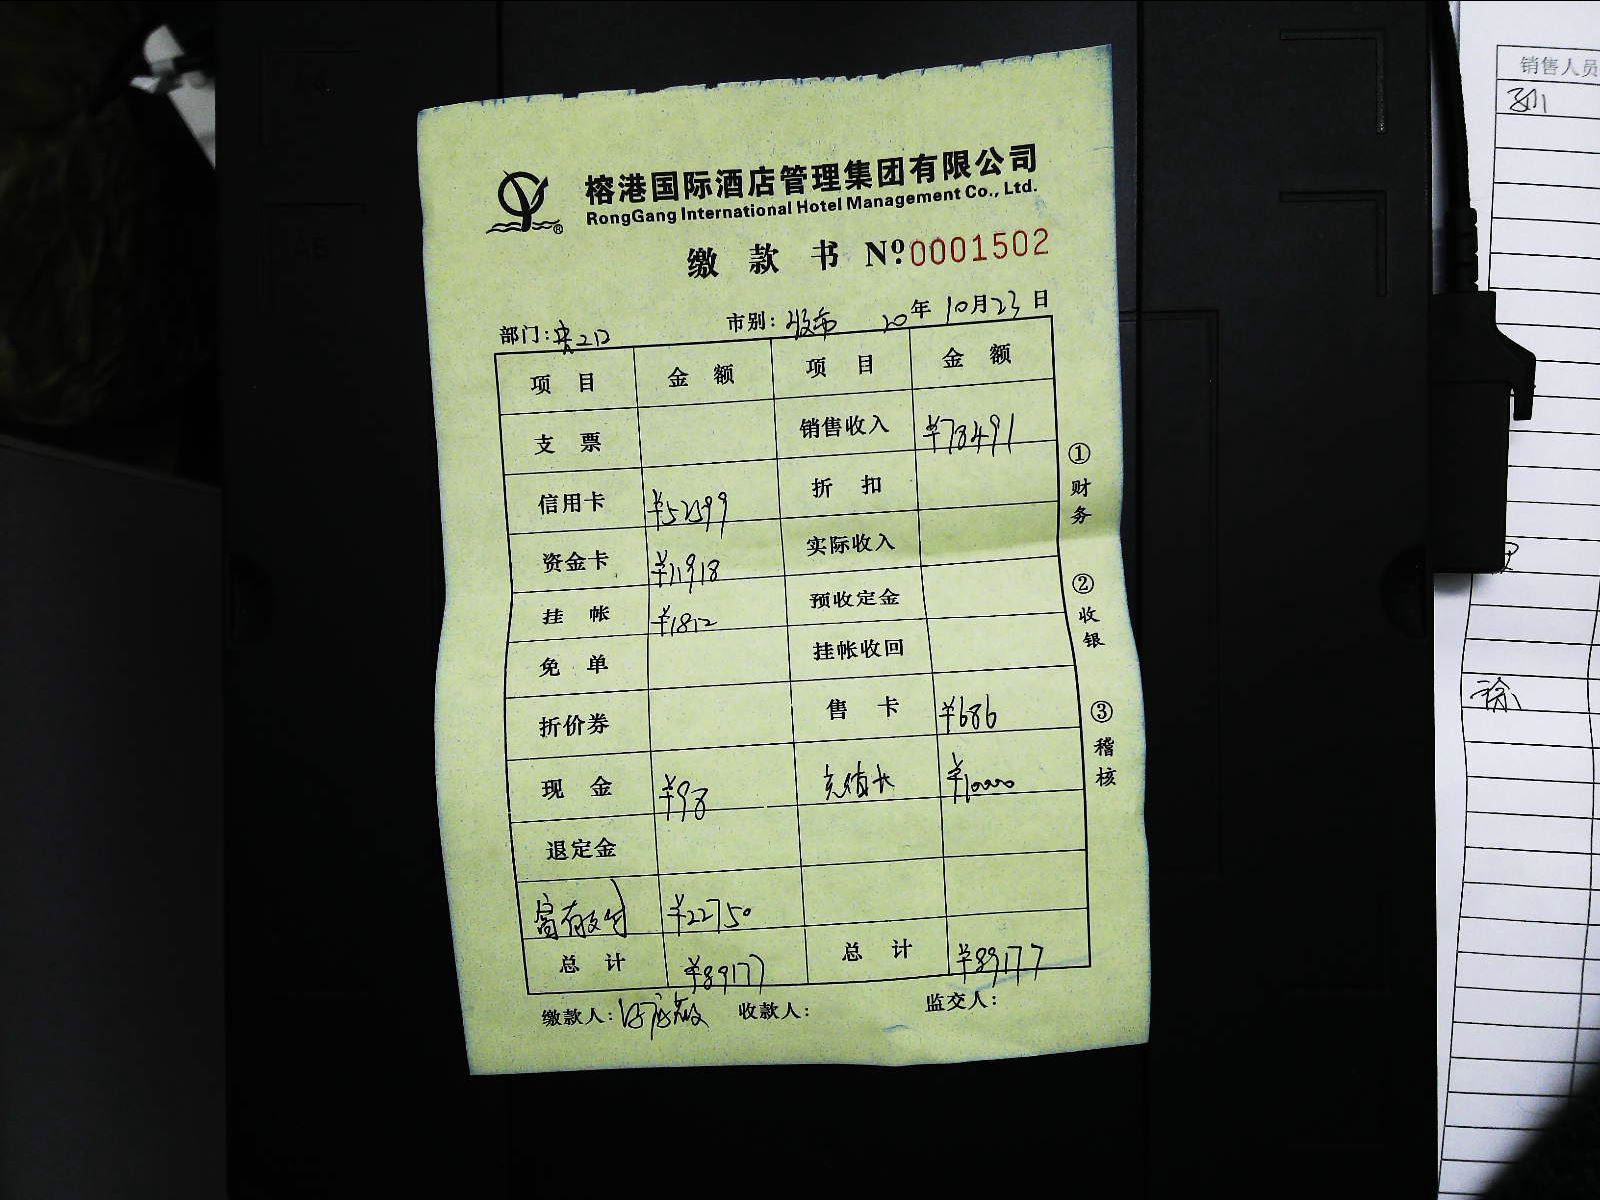 榕港国际酒店管理集团有限公司
RongGang International Hotel Management Co., Ltd.
缴款书 Nº 0001502
部门: 市别: 20年10月23日
项目 金额 项目 金额
支票 销售收入 ¥78491
信用卡 ¥52599 折扣
资金卡 ¥11918 实际收入
挂帐 ¥1812 预收定金
免单 挂帐收回
折价券 售卡 ¥686
现金 ¥98 充值卡 ¥10000
退定金
富有支付 ¥22750
总计 ¥89177 总计 ¥89177
缴款人: 收款人: 监交人:
①财务
②收银
③稽核
销售人员